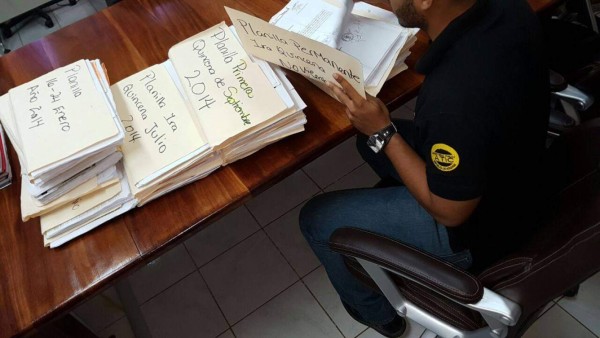 Planilla
16-24 Enero
Año 2014
Planilla 1ra
Quincena Julio
2014
Planilla Primera
Quincena de Septiembre
2014
Planilla Permanente
1ra Quincena
Noviem
ATIC